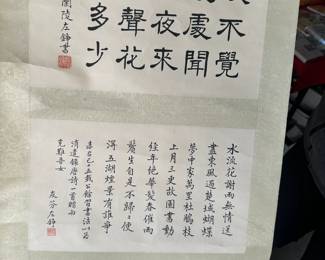 不覺
處聞
夜來
聲花
多少
蘭陵左錚書
水流花謝兩無情送
盡東風過楚城蝴蝶
夢中家萬里杜鵑枝
上月三更故園書動
經年絶華髮春催兩
鬢生自是不歸歸便
得五湖煙景有誰爭
公餘習書法以為
清遣錄唐詩一首贈與
克難吾女
友芬左錚